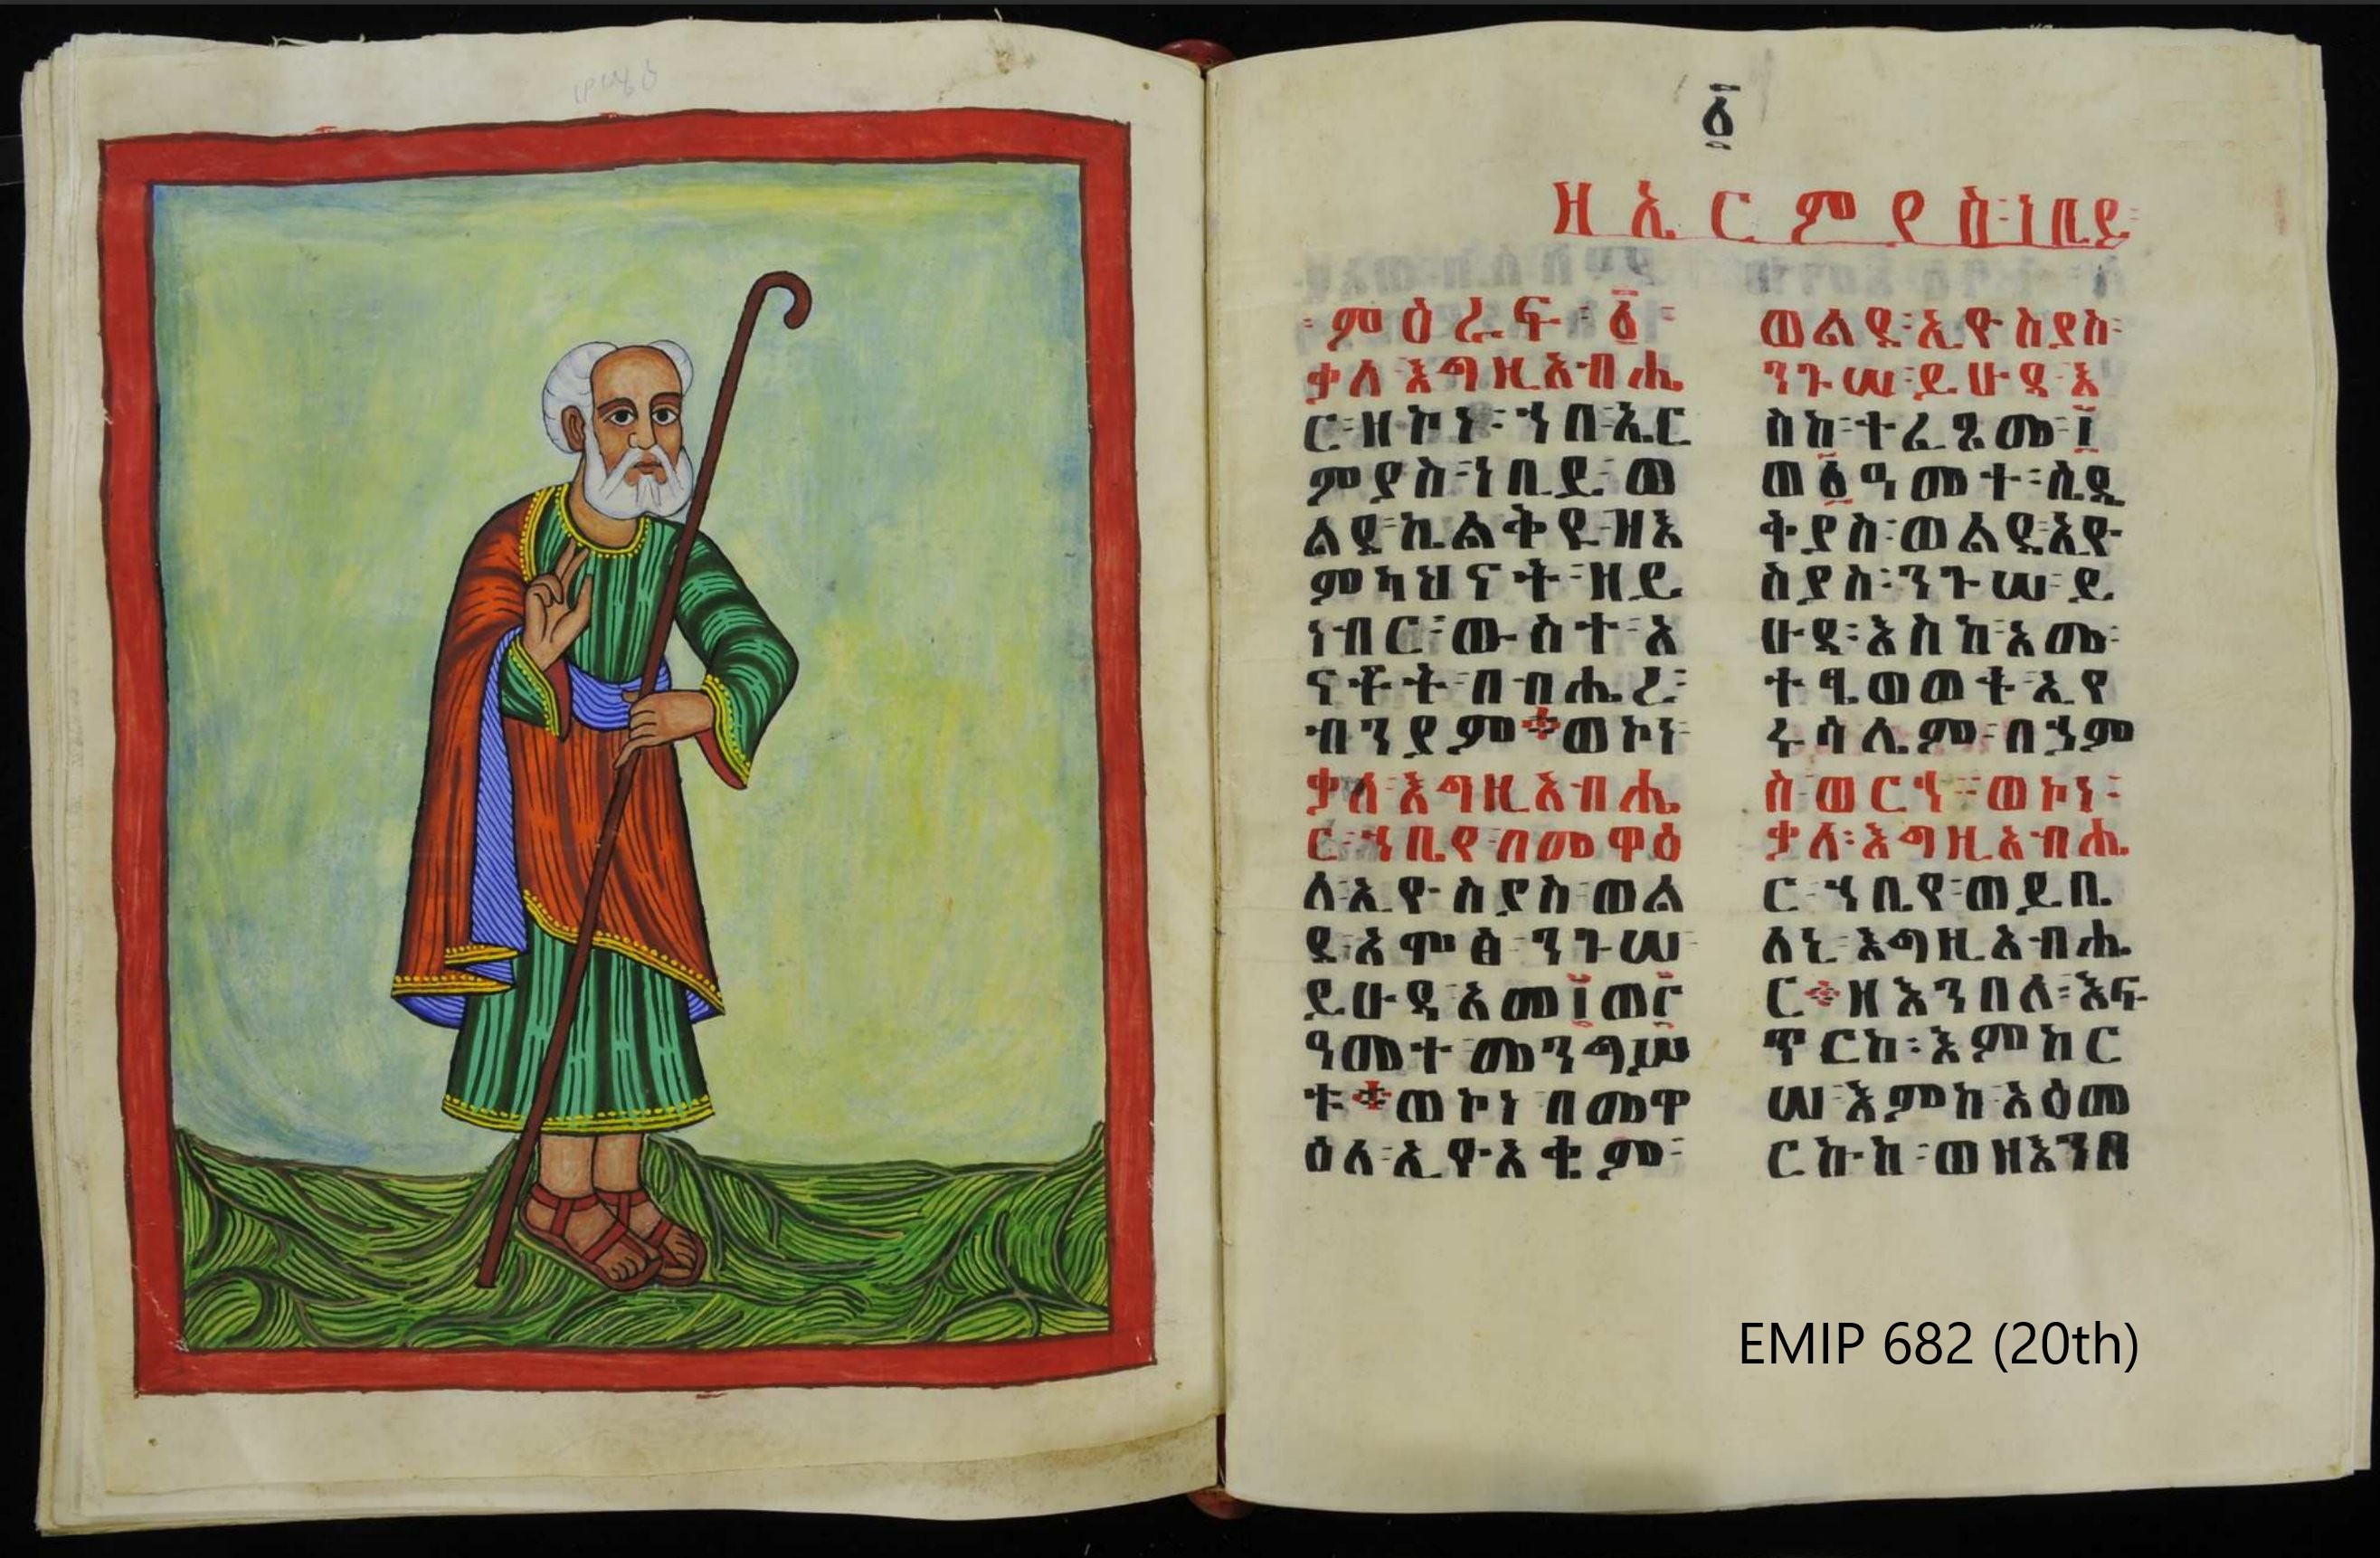 ፩
ዘኤርምያስ፡ነቢይ፡
፡ምዕራፍ፡፩፡
ቃለ፡እግዚአብሔ
ር፡ዘኮነ፡ኀበ፡ኤር
ምያስ፡ነቢይ፡ወ
ልደ፡ኬልቅዩ፡ዝእ
ምካህናት፡ዘይ
ነብር፡ውስተ፡አ
ናቶት፡በብሔረ፡
ብንያም፨ወኮነ፡
ቃለ፡እግዚአብሔ
ር፡ኀቤየ፡በመዋዕ
ለ፡ኢዮስያስ፡ወል
ደ፡አሞፅ፡ንጉሠ፡
ይሁዳ፡አመ፲ወ፫
ዓመተ፡መንግሥ
ቱ፨ወኮነ፡በመዋ
ዕለ፡ኢዮአቄም፡
ወልደ፡ኢዮስያስ፡
ንጉሠ፡ይሁዳ፡እ
ስከ፡ተፈጸሙ፡፲
ወ፩ዓመተ፡ሴዴ
ቅያስ፡ወልደ፡ኢዮ
ስያስ፡ንጉሠ፡ይ
ሁዳ፡እስከ፡አመ፡
ተፄወወት፡ኢየ
ሩሳሌም፡በኃም
ስ፡ወርኅ፡ወኮነ፡
ቃለ፡እግዚአብሔ
ር፡ኀቤየ፡ወይቤ
ለኒ፡እግዚአብሔ
ር፨ዘእንበለ፡እፍ
ጥርከ፡እምከር
ሠ፡እምከ፡አዕመ
ርኩከ፡ወዘእንበ
EMIP 682 (20th)